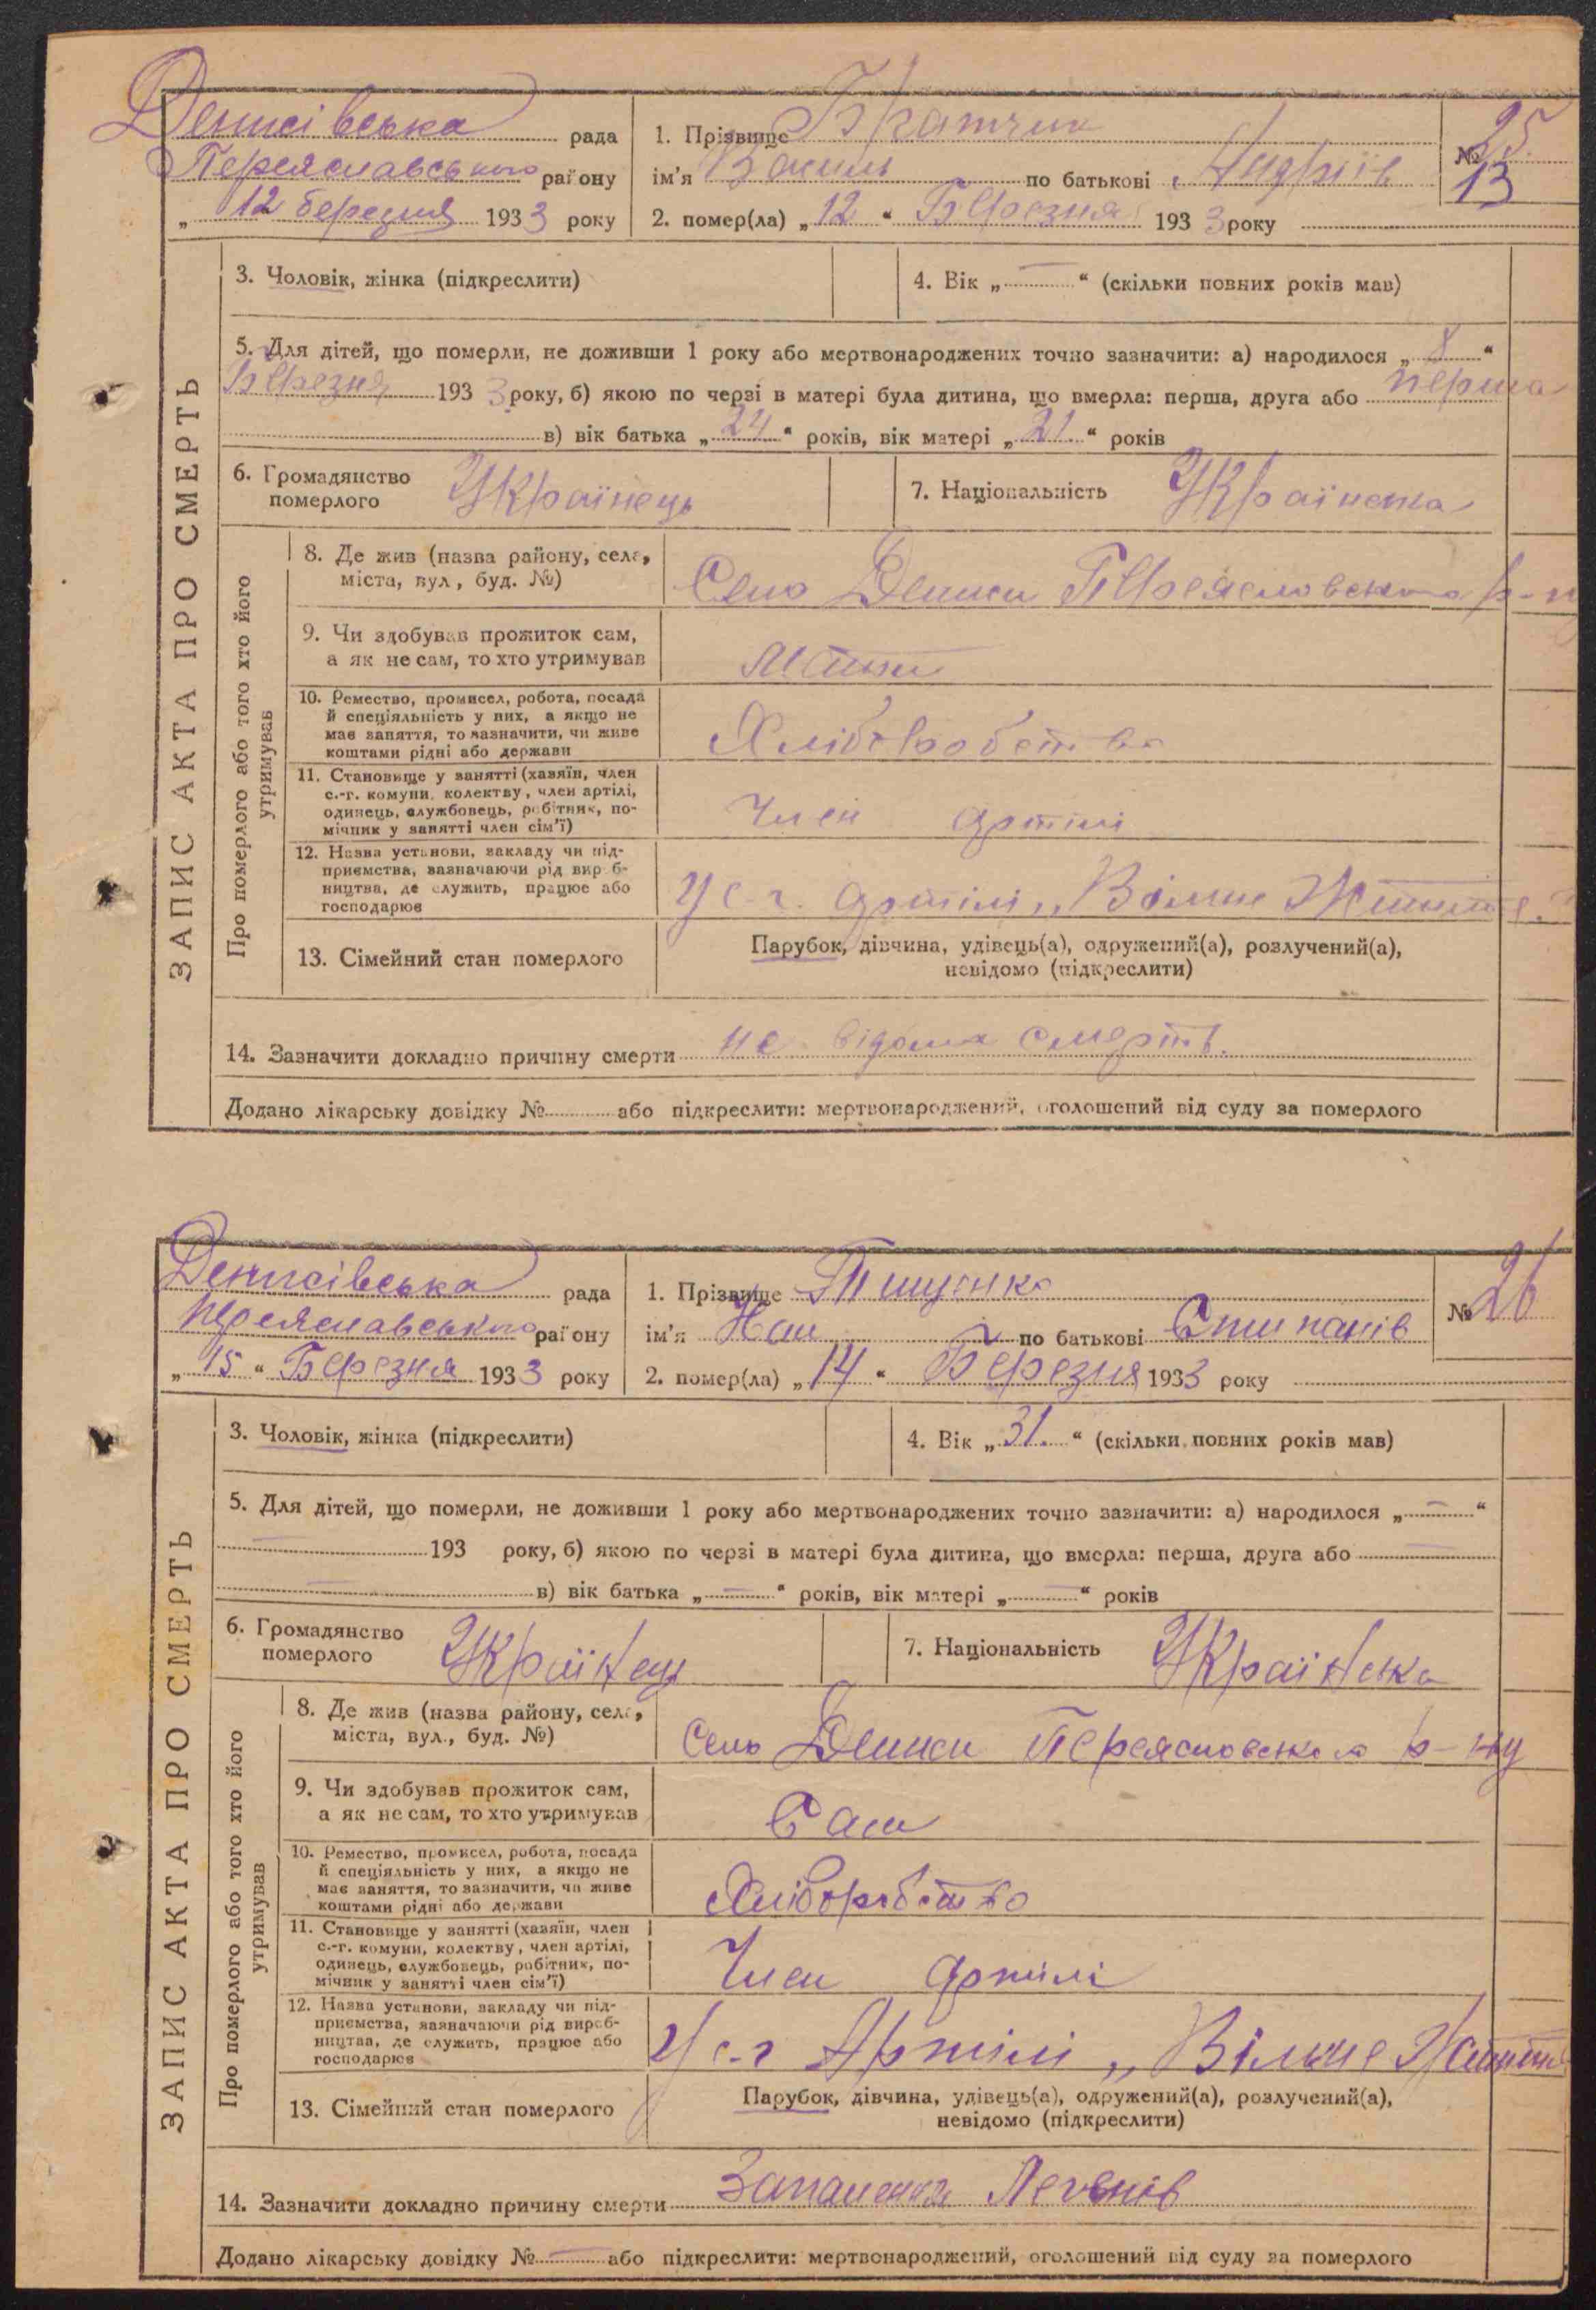 Денисівська рада
Переяславського району
„ 12 березня 1933 року
1. Прізвище Братчик
ім’я Василь по батькові Андріїв
2. помер(ла) „12“ Березня 1933 року
№ 25.
13
ЗАПИС АКТА ПРО СМЕРТЬ
3. Чоловік, жінка (підкреслити)
4. Вік „—“ (скільки повних років мав)
5. Для дітей, що померли, не доживши 1 року або мертвонароджених точно зазначити: а) народилося „8“
Березня 1933 року, б) якою по черзі в матері була дитина, що вмерла: перша, друга або перша
в) вік батька „24“ років, вік матері „21“ років
6. Громадянство
померлого Українець
7. Національність Українська
Про померлого або того хто його
утримував
8. Де жив (назва району, села,
міста, вул., буд. №) Село Дениси Переясловського р-ну
9. Чи здобував прожиток сам,
а як не сам, то хто утримував
10. Ремество, промисел, робота, посада
й спеціяльність у них, а якщо не
має заняття, то зазначити, чи живе
коштами рідні або держави Хліборобство
11. Становище у занятті (хазяїн, член
с.-г. комуни, колектву, член артілі,
одинець, службовець, робітник, по-
мічник у занятті член сім’ї) Член артілі
12. Назва установи, закладу чи під-
приємства, зазначаючи рід вироб-
ництва, де служить, працює або
господарює У с.-г. артілі „Вільне Життя“
13. Сімейний стан померлого
Парубок, дівчина, удівець(а), одружений(а), розлучений(а),
невідомо (підкреслити)
14. Зазначити докладно причину смерти не відома смерть.
Додано лікарську довідку № або підкреслити: мертвонароджений, оголошений від суду за померлого
Денисівська рада
Переяславського району
„15“ Березня 1933 року
1. Прізвище Тищенко
ім’я по батькові Степанів
2. помер(ла) „14“ Березня 1933 року
№ 26
ЗАПИС АКТА ПРО СМЕРТЬ
3. Чоловік, жінка (підкреслити)
4. Вік „31.“ (скільки повних років мав)
5. Для дітей, що померли, не доживши 1 року або мертвонароджених точно зазначити: а) народилося „—“
— 193 року, б) якою по черзі в матері була дитина, що вмерла: перша, друга або —
— в) вік батька „—“ років, вік матері „—“ років
6. Громадянство
померлого Українец
7. Національність Українська
Про померлого або того хто його
утримував
8. Де жив (назва району, села,
міста, вул., буд. №) Село Дениси Переясловського р-ну
9. Чи здобував прожиток сам,
а як не сам, то хто утримував Сам
10. Ремество, промисел, робота, посада
й спеціяльність у них, а якщо не
має заняття, то зазначити, чи живе
коштами рідні або держави Хліборобство
11. Становище у занятті (хазяїн, член
с.-г. комуни, колектву, член артілі,
одинець, службовець, робітник, по-
мічник у занятті член сім’ї) Член артілі
12. Назва установи, закладу чи під-
приємства, зазначаючи рід вироб-
ництва, де служить, працює або
господарює У с-г Артілі „Вільне Життя
13. Сімейний стан померлого
Парубок, дівчина, удівець(а), одружений(а), розлучений(а),
невідомо (підкреслити)
14. Зазначити докладно причину смерти Запалення Легенів
Додано лікарську довідку № — або підкреслити: мертвонароджений, оголошений від суду за померлого